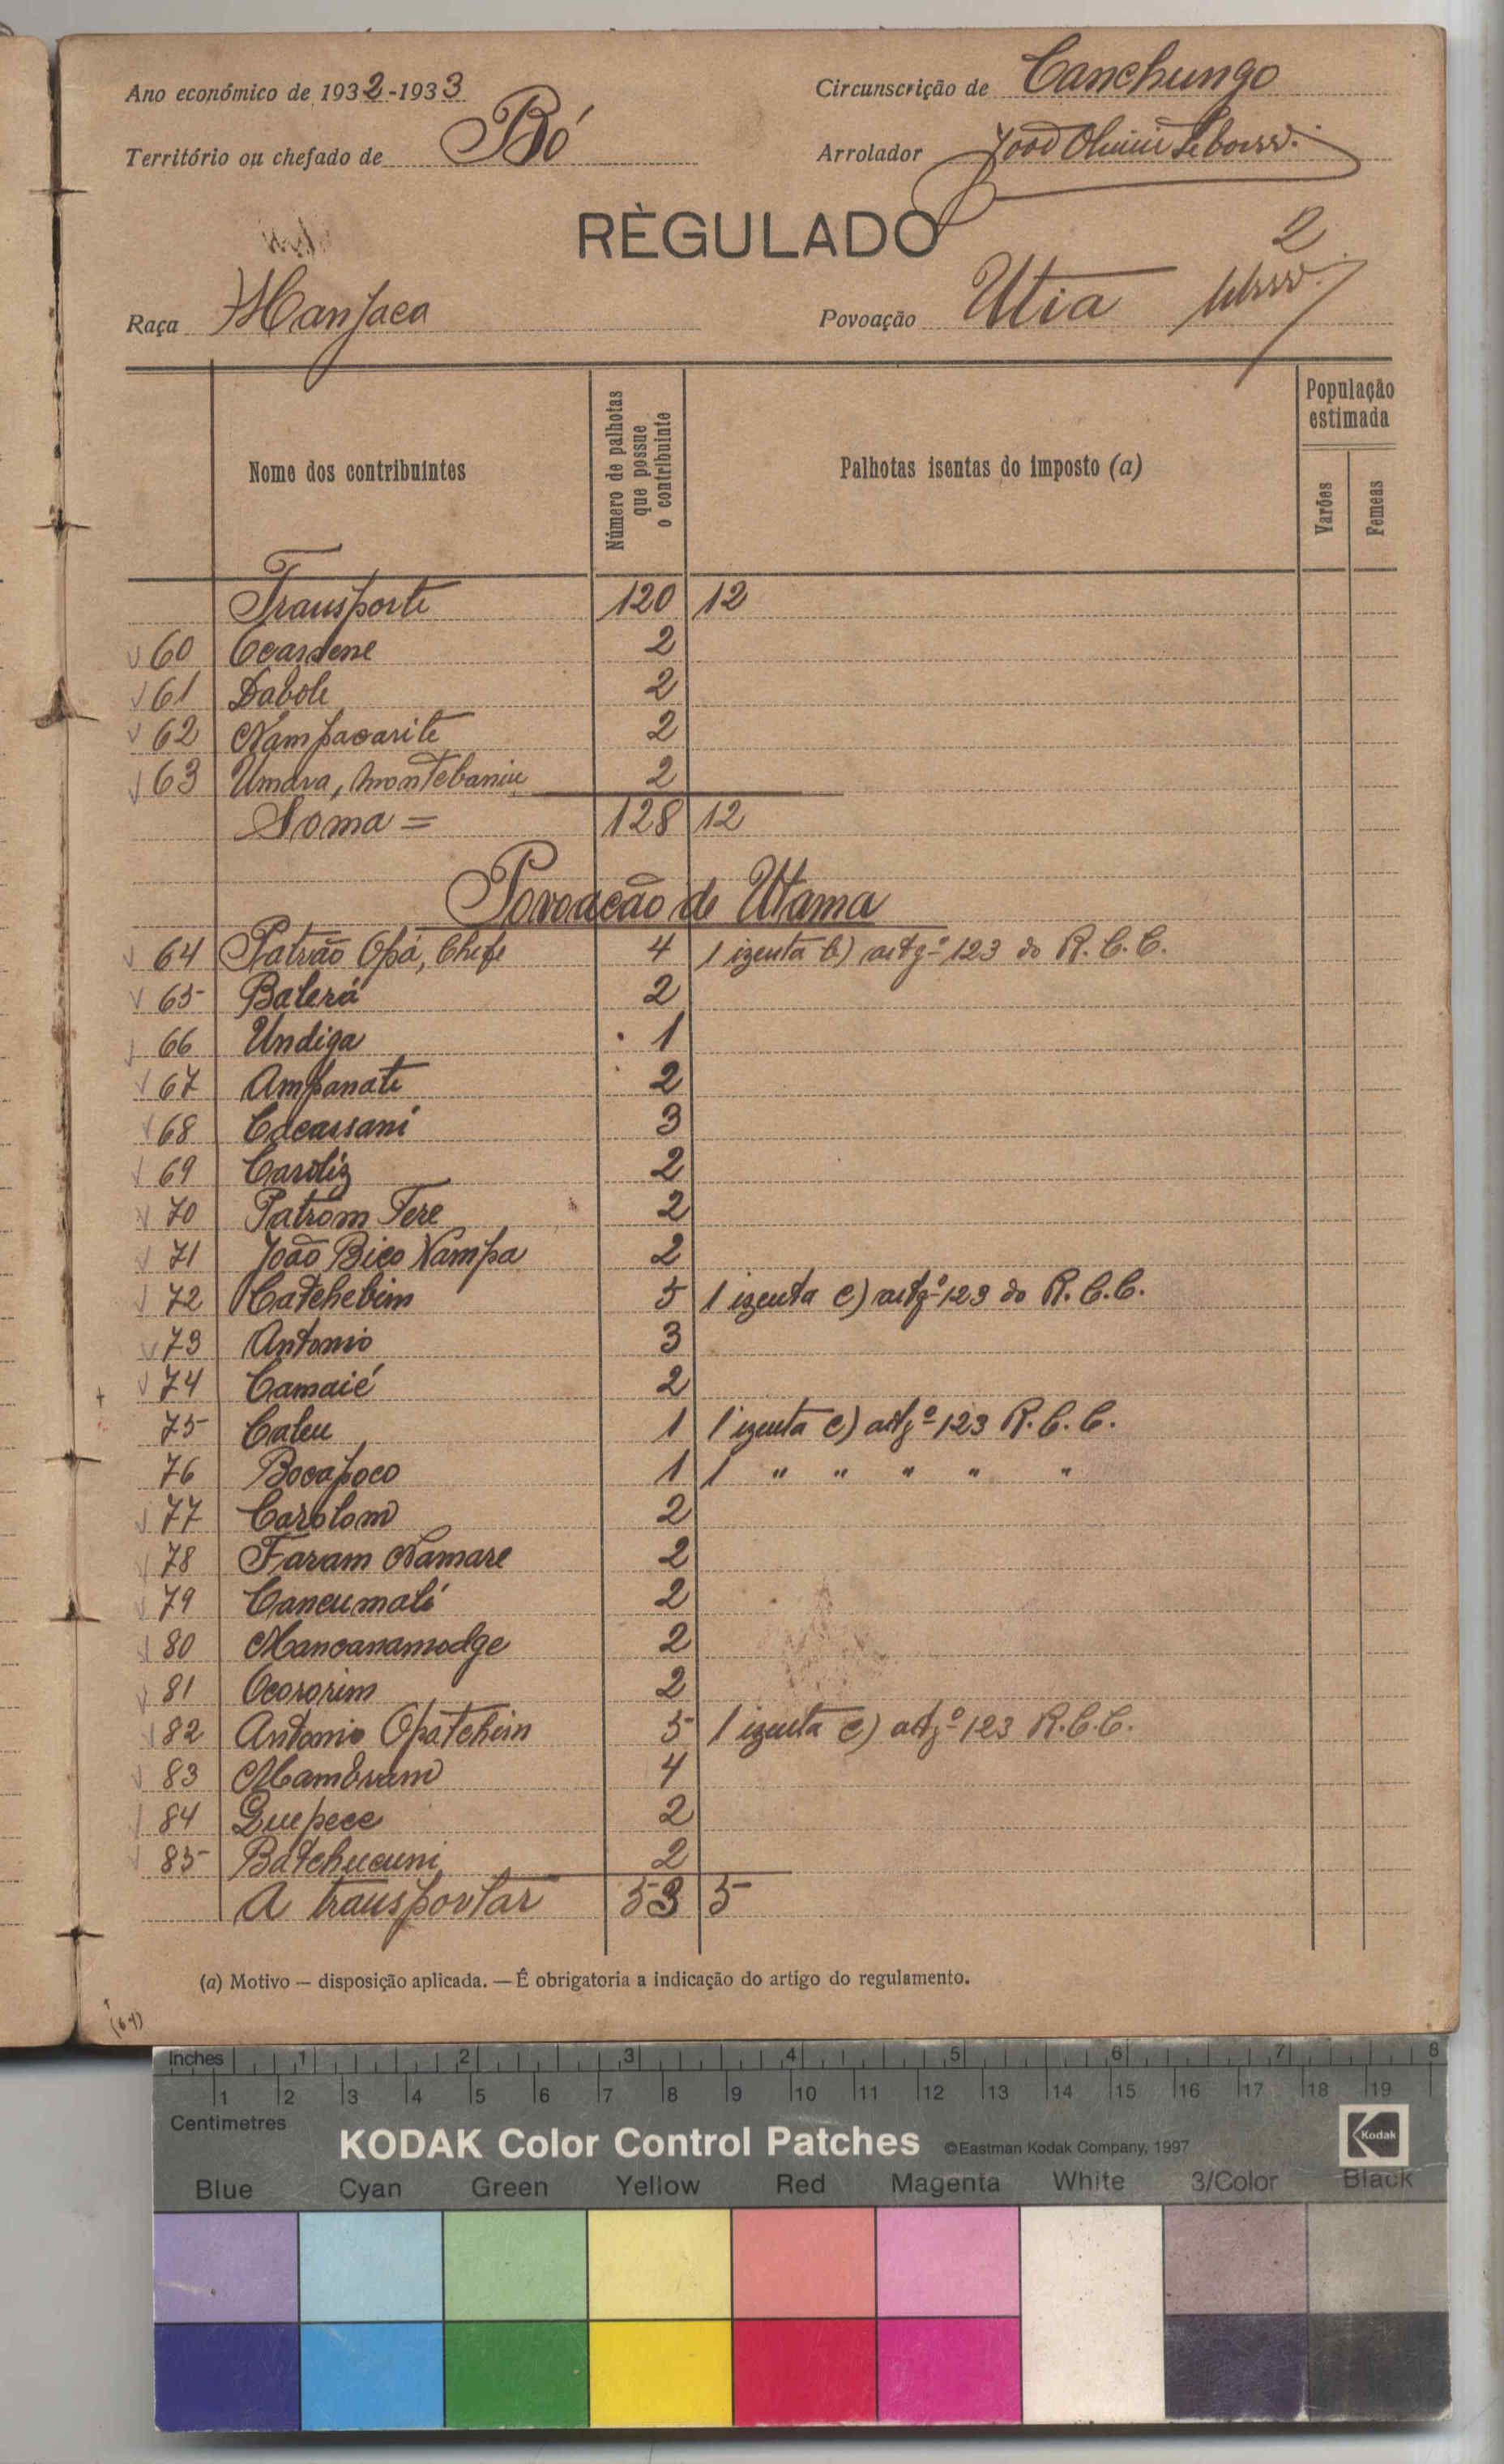 Ano económico de 1932-1933
Circunscrição de Canchungo
Território ou chefado de Bó
Arrolador João
RÈGULADO
2
Raça Manjaca
Povoação Utia
Nome dos contribuintes
Número de palhotas que possue o contribuinte
Palhotas isentas do imposto (a)
População estimada
Varões
Femeas
Transporte 120 12
60 Ocardene 2
61 Dabole 2
62 Nampacarite 2
63 Umara, montebaniu 2
Soma = 128 12
Povoacão de Utama
64 Patrão Opá, Chefe 4 1 izenta b) artgº 123 do R. C. C.
65 Balerá 2
66 Undiga 1
67 Ampanate 2
68 Cacassani 3
69 Caroliz 2
70 Patrom Tere 2
71 João Bico Nampa 2
72 Catchebim 5 1 izenta c) artgº 123 do R. C. C.
73 Antonio 3
74 Camaié 2
75 Caleu 1 1 izenta c) artgº 123 R. C. C.
76 Bocapoco 1 1 " " " " "
77 Carolom 2
78 Faram Namare 2
79 Cancumali 2
80 Mancanamodge 2
81 Ocororim 2
82 Antonio Opatchim 5 1 izenta c) artgº 123 R. C. C.
83 Mambram 4
84 Quepece 2
85 Batchucuni 2
A transportar 53 5
(a) Motivo — disposição aplicada. — É obrigatoria a indicação do artigo do regulamento.
Inches 1 2 3 4 5 6 7 8
1 2 3 4 5 6 7 8 9 10 11 12 13 14 15 16 17 18 19
Centimetres
KODAK Color Control Patches ©Eastman Kodak Company, 1997 Kodak
Blue Cyan Green Yellow Red Magenta White 3/Color Black